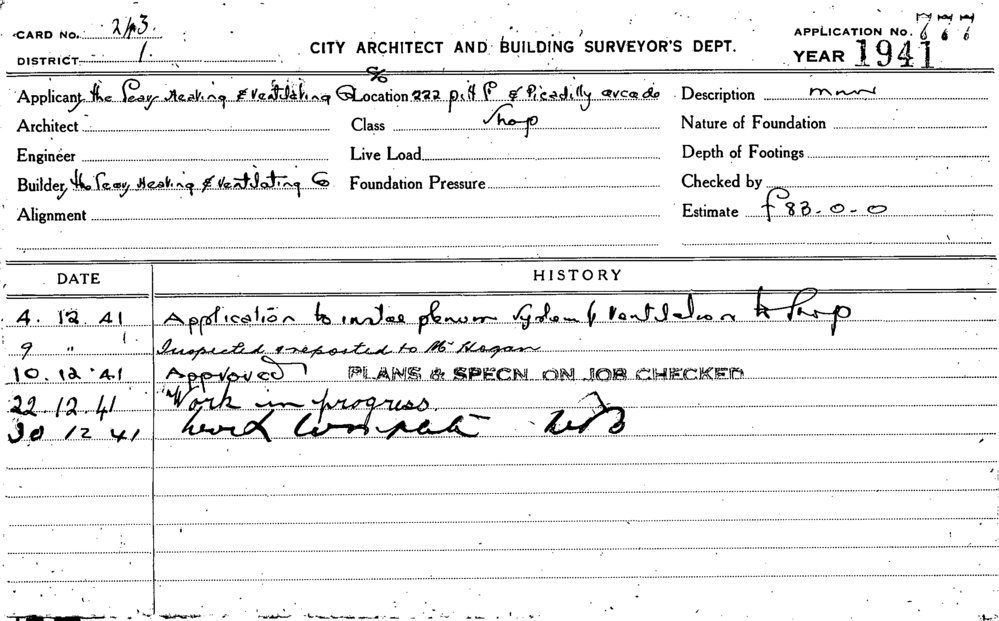 CARD No. 2/13.
APPLICATION No. 777
DISTRICT 1
CITY ARCHITECT AND BUILDING SURVEYOR'S DEPT.
YEAR 1941
Applicant the Heating & Ventilating Co
Location 222 Pitt St & Picadilly arcade
Description
Architect
Class Shop
Nature of Foundation
Engineer
Live Load
Depth of Footings
Builder the Heating & Ventilating Co
Foundation Pressure
Checked by
Alignment
Estimate £83-0-0
DATE
HISTORY
4. 12. 41 Application to plenum System of Ventilation to Shop
9 " Inspected & reported to Mr Hogan
10.12.41 Approved PLANS & SPECN. ON JOB CHECKED
22.12.41 Work in progress.
30 12 41 Work Complete